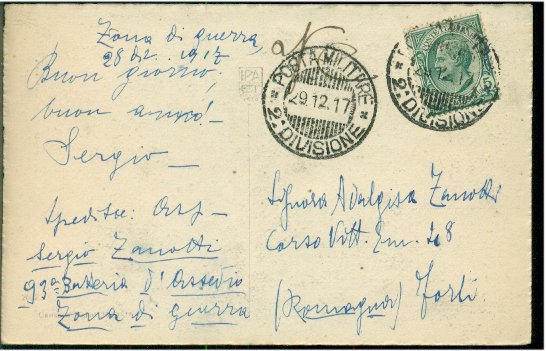 Zona di guerra
28 12 1917
Buon giorno,
buon anno!
Sergio
Spedisce: Asp.
Sergio Zanotti
93a Batteria d'Assedio
Zona di guerra
POSTA MILITARE
29.12.17
2a DIVISIONE
DIVISIONE
Signora Adalgisa Zanotti
Corso Vitt. Em. 48
(Romagna) Forlì